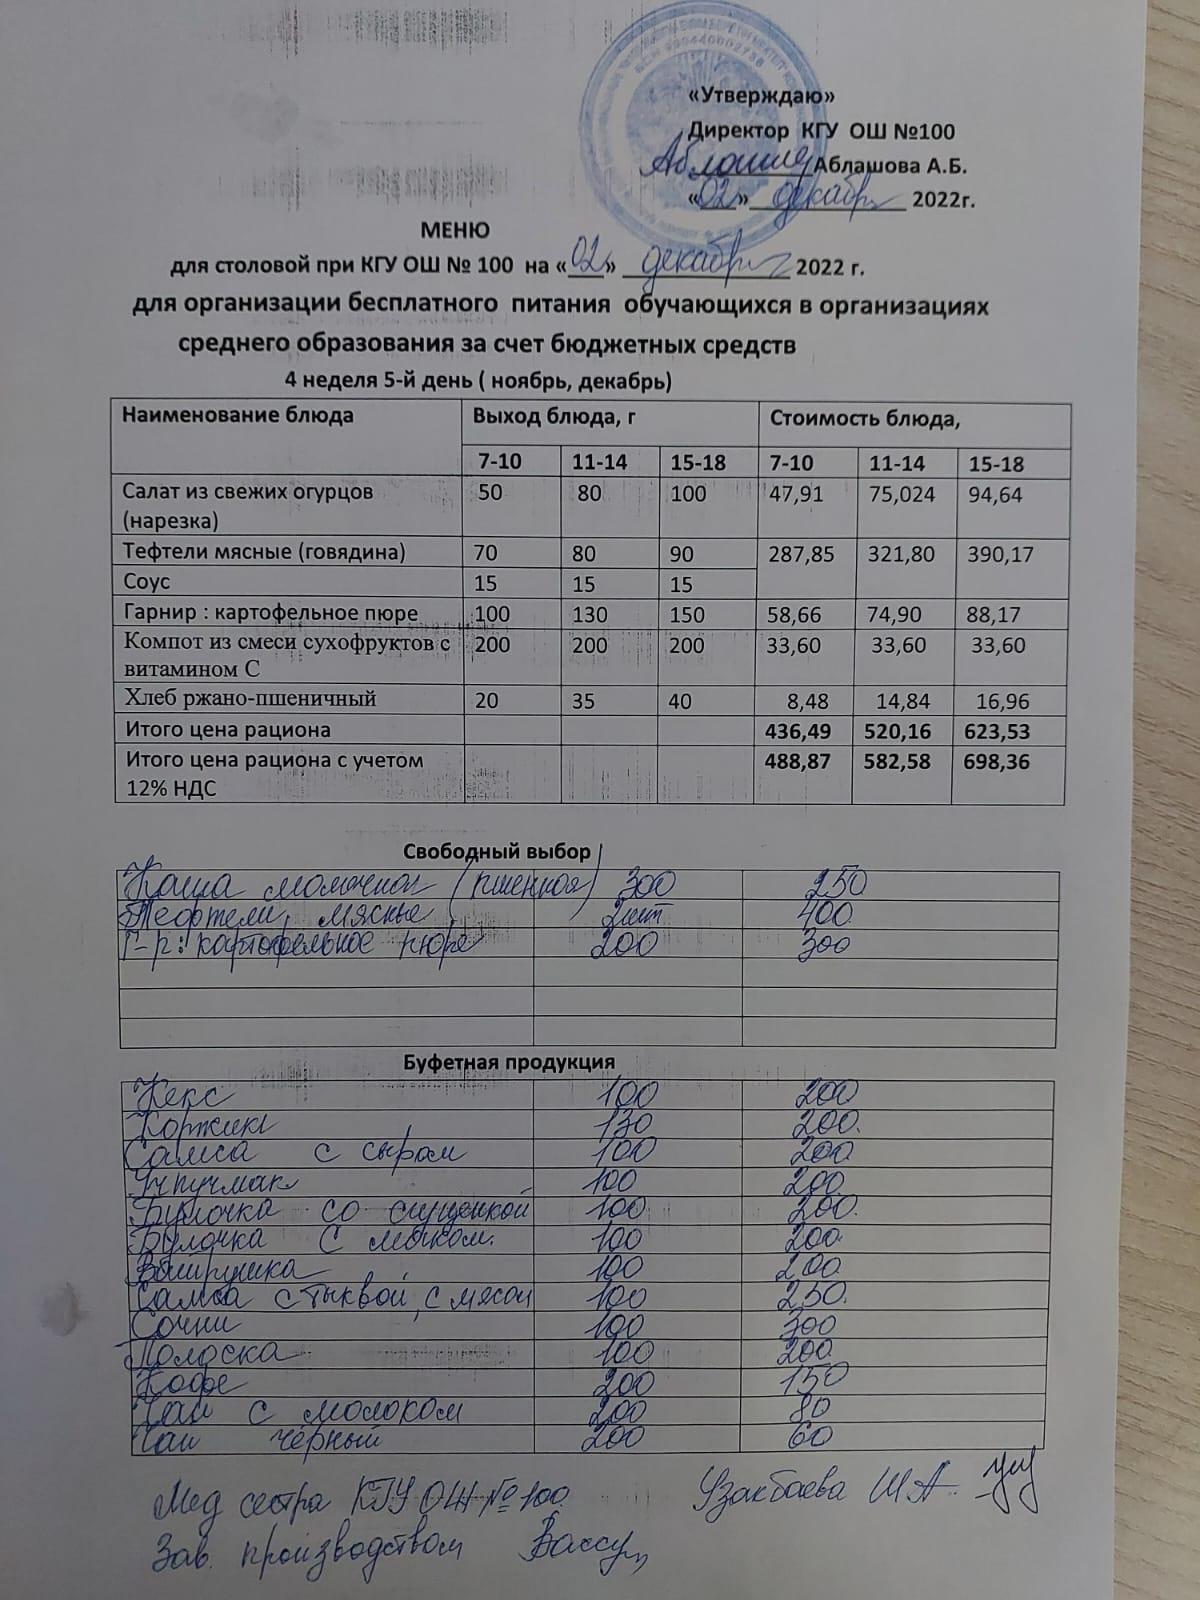 «Утверждаю»
Директор КГУ ОШ №100
Аблашова А.Б.
«02» декабрь 2022г.
МЕНЮ
для столовой при КГУ ОШ № 100 на «02» декабрь 2022 г.
для организации бесплатного питания обучающихся в организациях
среднего образования за счет бюджетных средств
4 неделя 5-й день ( ноябрь, декабрь)
Наименование блюда Выход блюда, г Стоимость блюда,
7-10 11-14 15-18 7-10 11-14 15-18
Салат из свежих огурцов 50 80 100 47,91 75,024 94,64
(нарезка)
Тефтели мясные (говядина) 70 80 90 287,85 321,80 390,17
Соус 15 15 15
Гарнир : картофельное пюре 100 130 150 58,66 74,90 88,17
Компот из смеси сухофруктов с 200 200 200 33,60 33,60 33,60
витамином С
Хлеб ржано-пшеничный 20 35 40 8,48 14,84 16,96
Итого цена рациона 436,49 520,16 623,53
Итого цена рациона с учетом 488,87 582,58 698,36
12% НДС
Свободный выбор
Каша молочная (пшенная) 300 250
Тефтели мясные 2шт 400
Г-р: картофельное пюре 200 300
Буфетная продукция
Кекс 100 200
Коржик 130 200.
Самса с сыром 100 200
Учпучмак 100 200
Булочка со сгущенкой 100 200.
Булочка с маком. 100 200
Ватрушка 100 200
Самса с тыквой, с мясом 100 250.
Сочни 100 300
Полоска 100 200
Кофе 200 150
Чай с молоком 200 80
Чай чёрный 200 60
Мед сестра КГУ ОШ №100. Узакбаева Ш.А.
Зав. производством